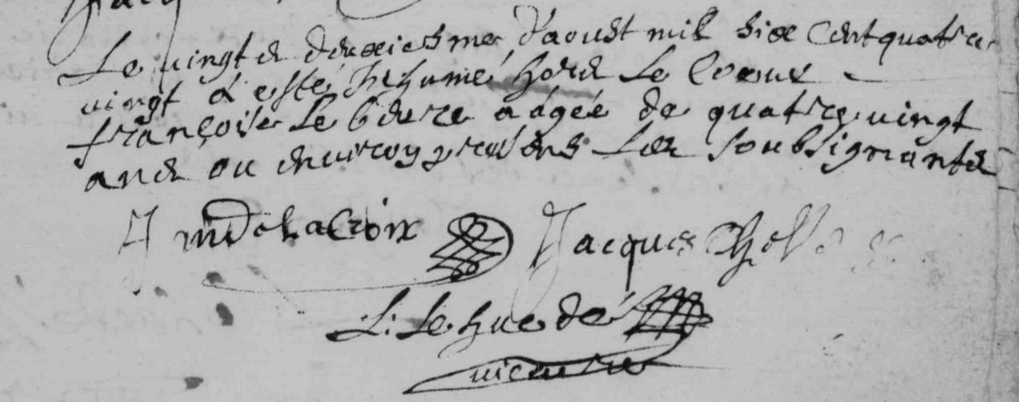 Le vingt d deuxiesme d'aoust mil six cent quatre
vingt a esté Inhumé hors le Coeur
françoise Le bevre aagée de quatre vingt
ans ou environ presens les soubsignants
J mDelaCroix Jacques
L: Lehuedé
vicaire